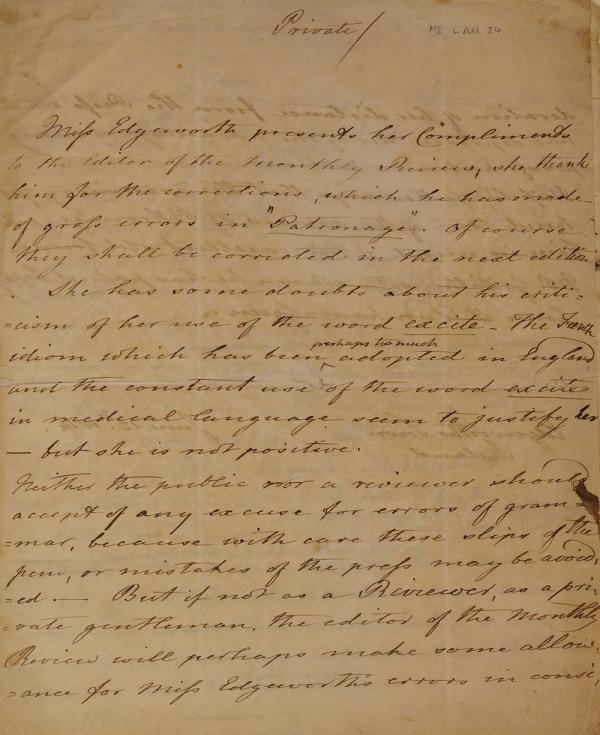 Private/
ME LAN 24
Miss Edgeworth presents her Compliments
to the Editor of the Monthly Review, she thanks
him for the corrections, which he has made
of gross errors in "Patronage". Of course
they shall be corrected in the next edition
. She has some doubts about his criti-
=cism of her use of the word excite - The French
perhaps too much
idiom which has been adopted in England
and the constant use of the word excite
in medical language seem to justify her
— but she is not positive.
Neither the public nor a reviewer should
accept of any excuse for errors of gram-
=mar, because with care these slips of the
pen, or mistakes of the press may be avoid,
=ed. — But if not as a Reviewer, as a pri,
=vate gentleman, the editor of the Monthly
Review will perhaps make some allow,
=ance for Miss Edgeworth's errors in consi,